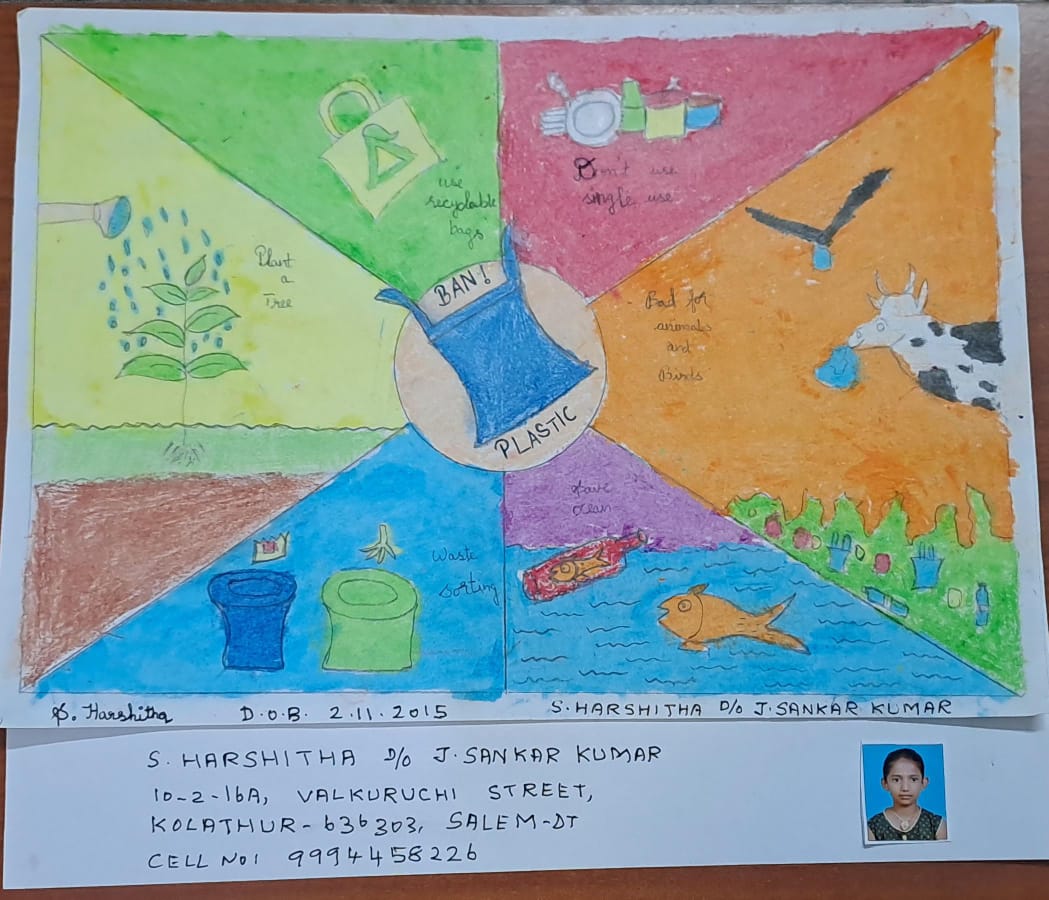 use
recyclable
bags
Don't use
single use
Plant
a
Tree
Bad for
animals
and
Birds
BAN!
PLASTIC
Save
ocean
Waste
sorting
S. Harshitha D.O.B. 2.11.2015 S.HARSHITHA D/o J.SANKAR KUMAR
S. HARSHITHA D/o J.SANKAR KUMAR
10-2-16A, VALKURUCHI STREET,
KOLATHUR-636303, SALEM-DT
CELL NO: 9994458226